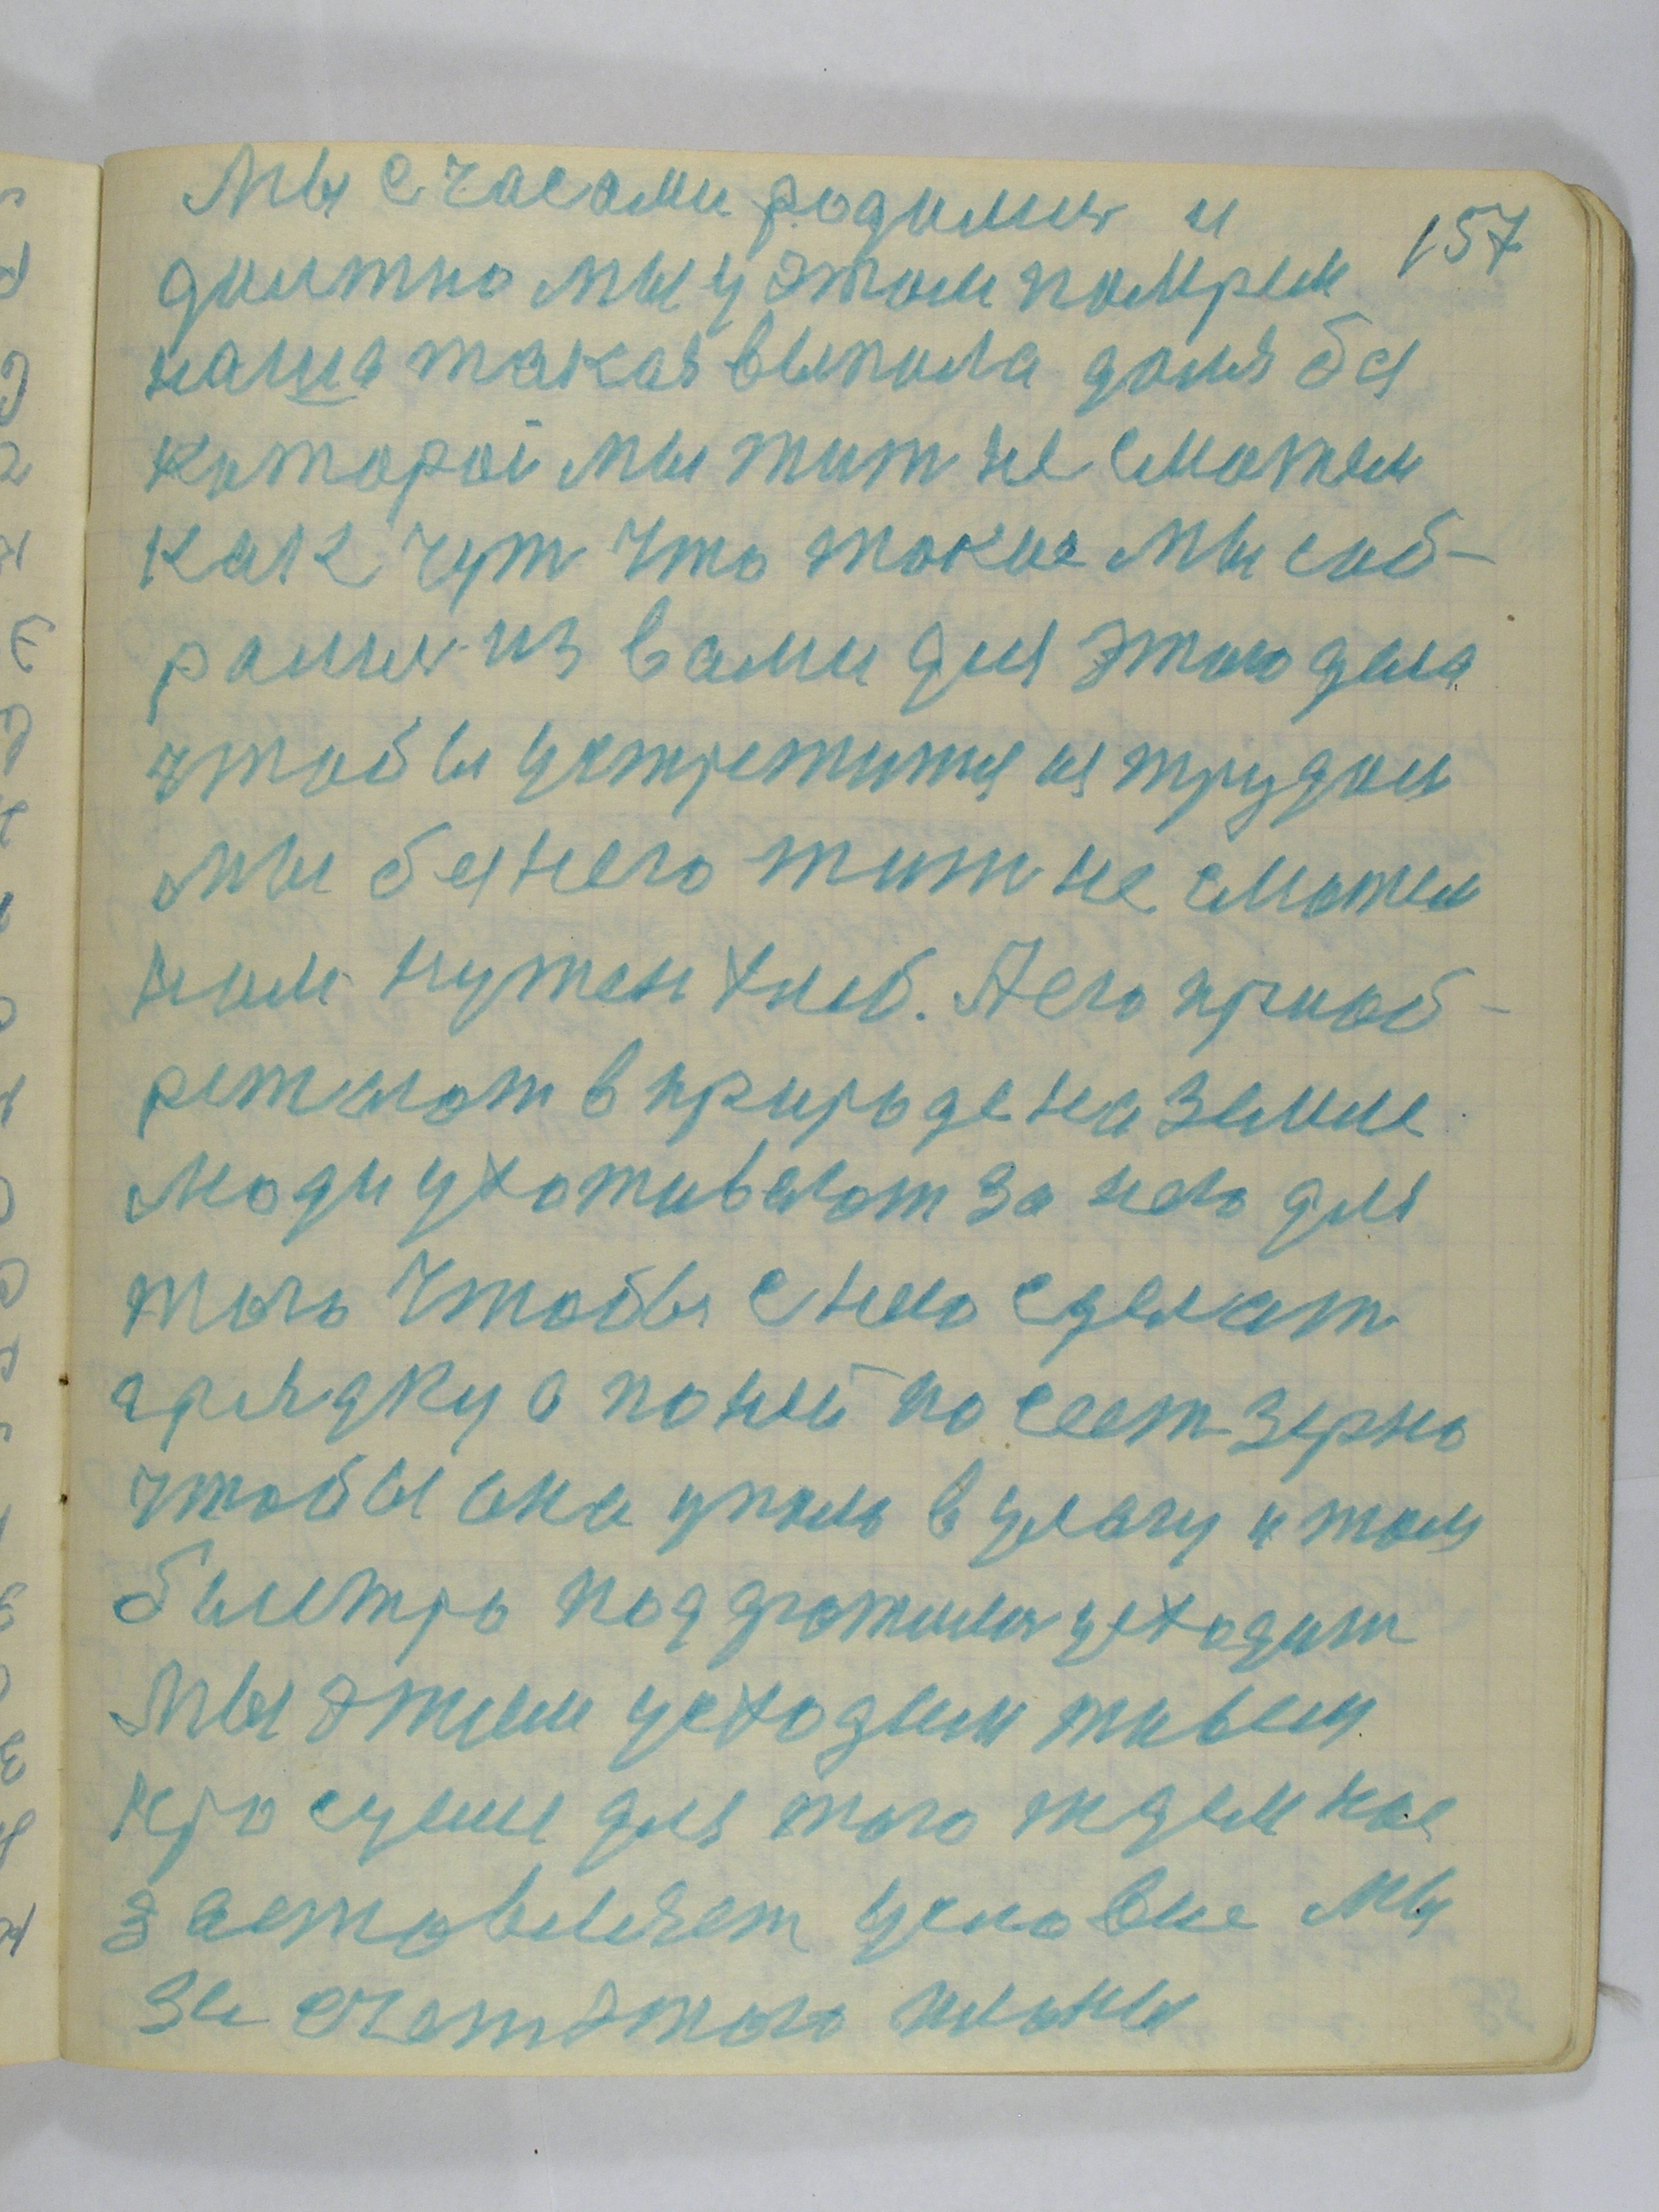 157
мы с часами родилис и
должно мы у этом помрем
наша такая выпала доля без
которой мы жит не сможем
как чут что такие мы соб-
ралис из вами для этого дела
чтобы устретится из трудом
мы без него жит не сможем
нам нужен хлеб. А его приоб-
ретают в природе на земле
люди ухаживают за него для
того чтобы с него сделат
грядку а по ней посеет зерно
чтобы она упала в улагу и там
быстро подражилас усходит
мы этим усходим живем
просуем для того ждем нас
заставляет условие мы
за счет этого планы